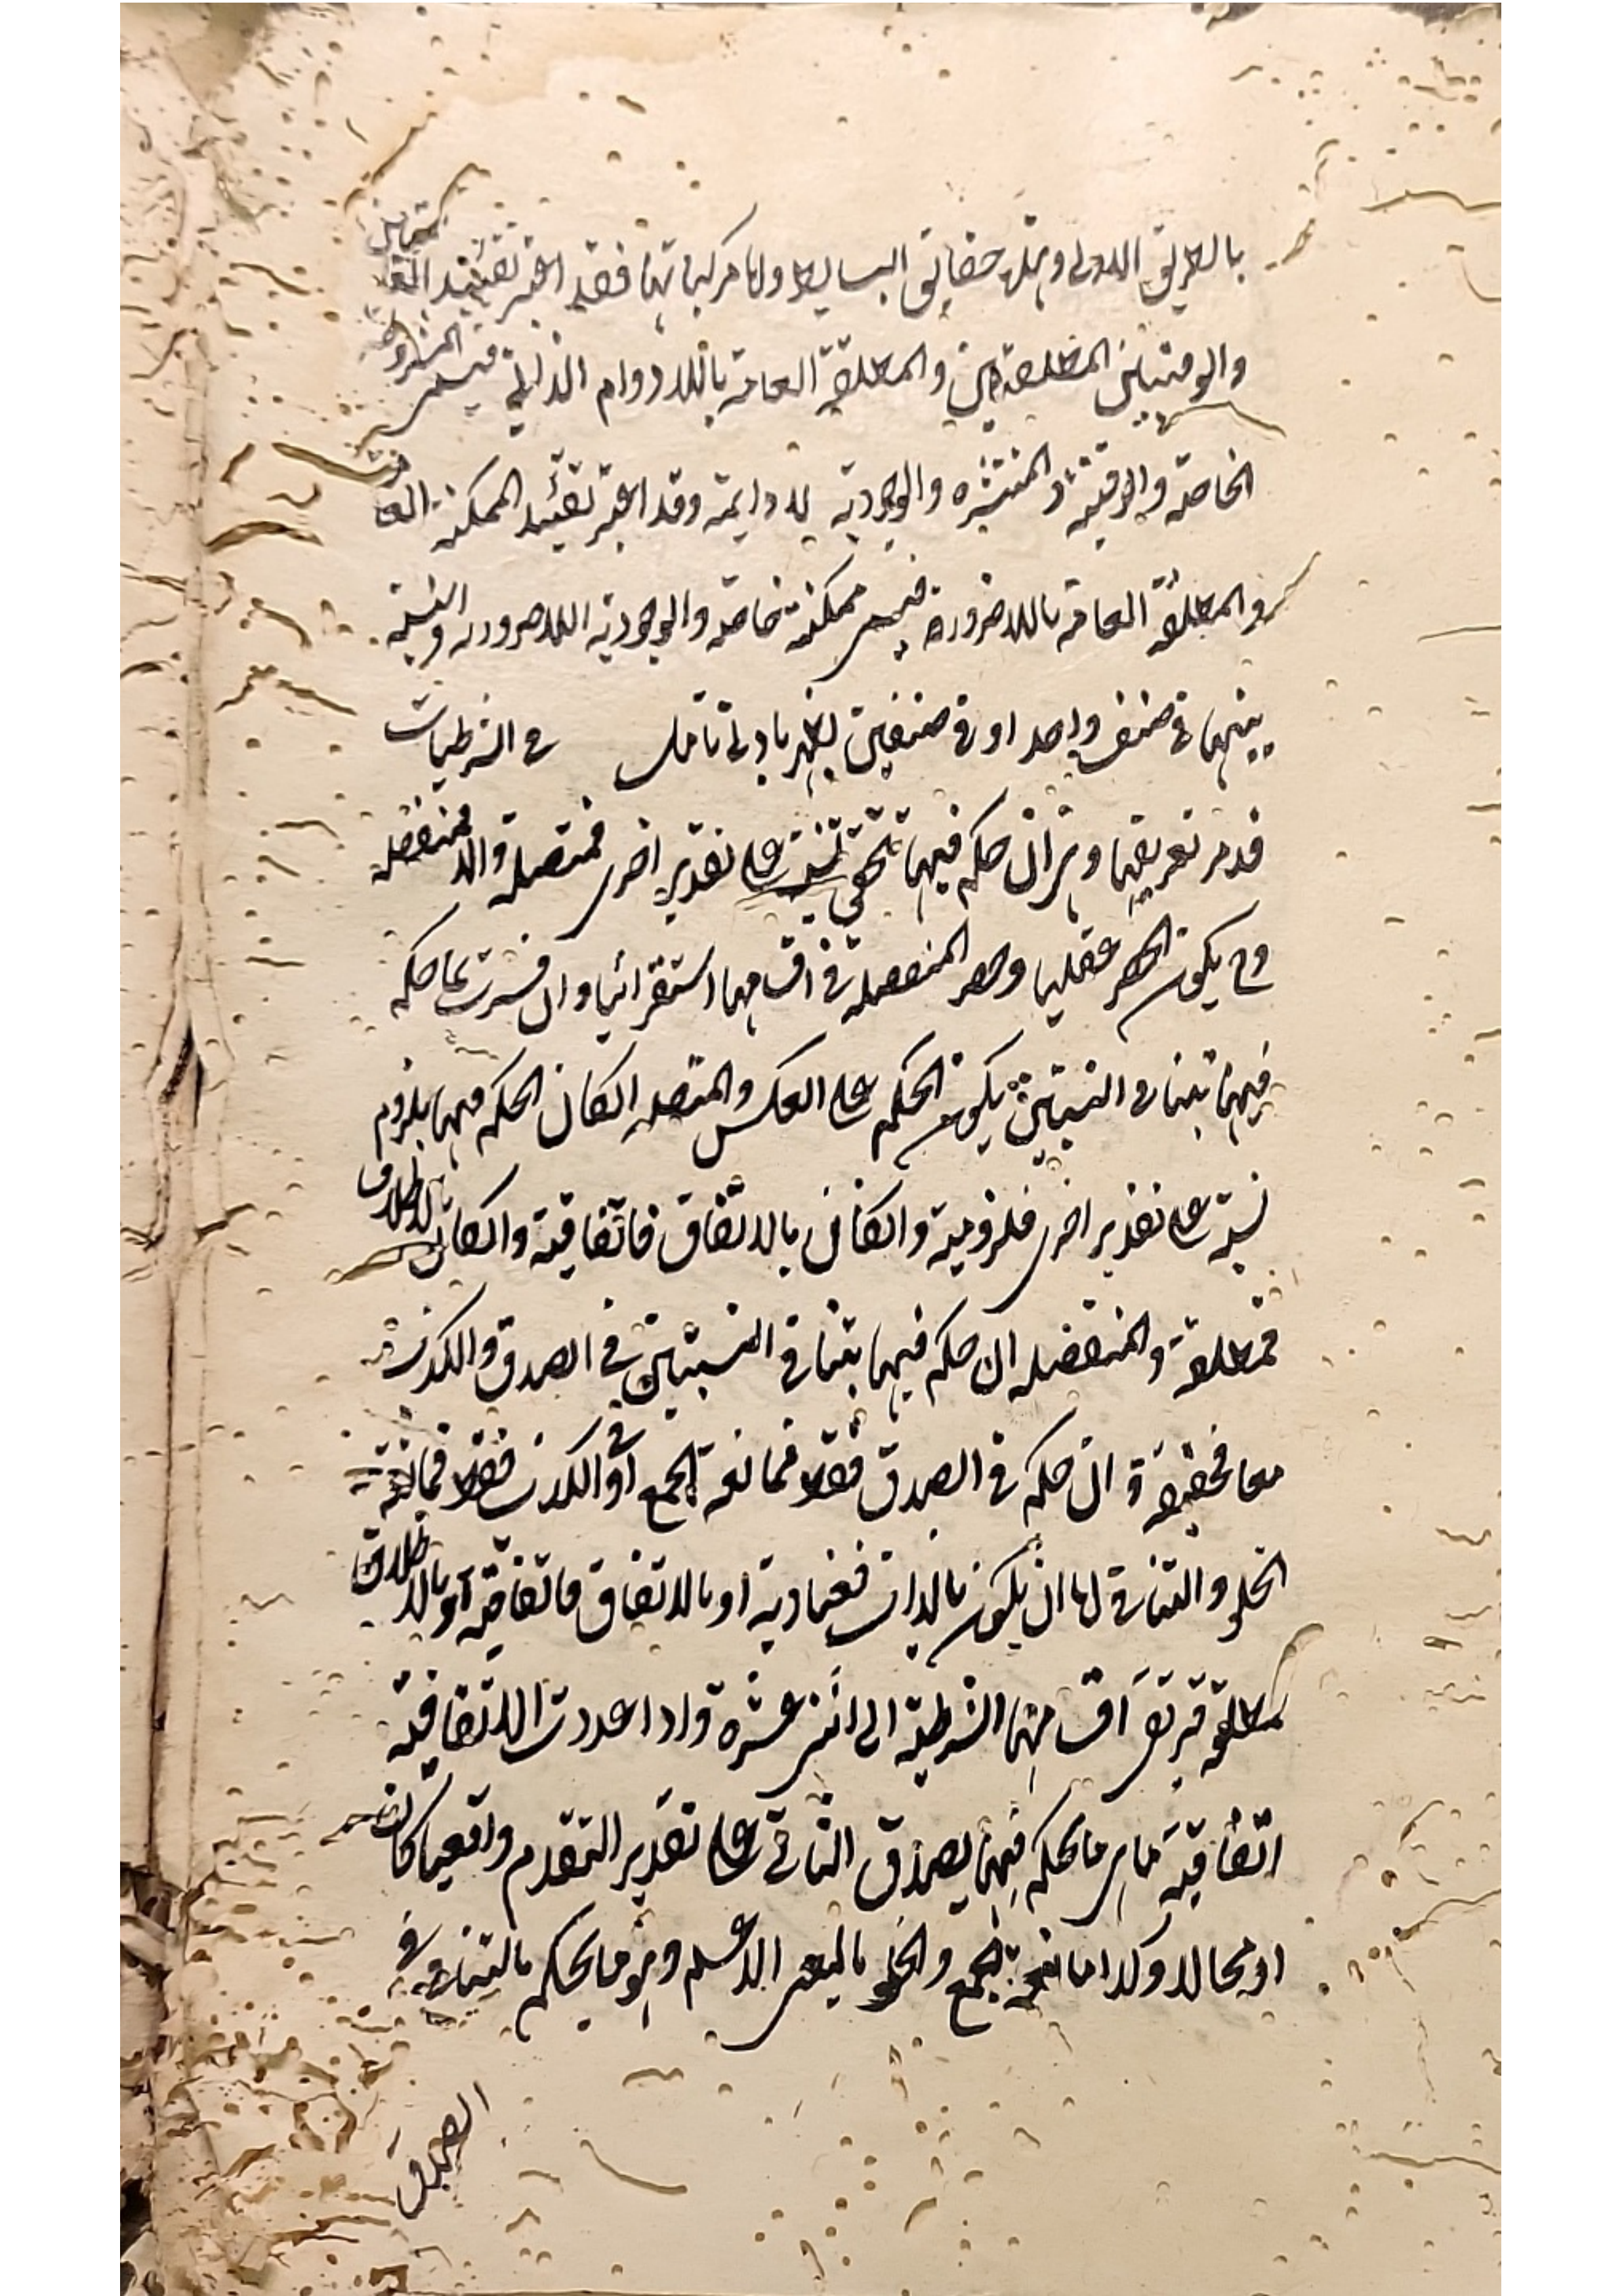 بالطريق الاولى وهذه حقايق البسايط واما مركباتها فقد اعتبر تقييد العامتين
والوقتيتين المطلقتين والمطلقة العامة باللادوام الذاتي فيسمى المشروطة
الخاصة والوقتية والمنتشره والوجودية اللادايمة وقد اعتبر تقييد الممكنة العامة
والمطلقة العامة باللاضرورة فيسمى ممكنة خاصة والوجودية اللاضرورية والنسبة
بينها في صنف واحد او في صنفين يظهر بادنى تامل في الشرطيات
قد مر تعريفها وهي ان حكم فيها بتحقق نسبة على تقدير اخرى فمتصلة والا فمنفصلة
وح يكون الحصر عقليا وحصر المنفصلة في اقسامها استقرائيا وان فسرت بما حكم
فيها بتنافي النسبتين يكون الحكم على العكس والمتصلة ان كان الحكم فيها بلزوم
نسبة على تقدير اخرى فلزومية وان كان بالاتفاق فاتفاقية وان كان بالاطلاق
فمطلقة والمنفصله ان حكم فيها بتنافي النسبتين في الصدق والكذب
معا فحقيقة وان حكم في الصدق فقط فمانعة الجمع او في الكذب فقط فمانعة
الخلو والتنافي اما ان يكون بالذات فعنادية او بالاتفاق فاتفاقية او بالاطلاق
فمطلقة فيرتقى اقسامها الشرطية الى اثنى عشرة واذا عددت الاتفاقية
اتفاقية عامة ما يحكم فيها بصدق التالي على تقدير المقدم واقعيا كان
او محالا وكذا مانعة الجمع والخلو بالمعنى الاعم وهو ما يحكم بالتنافي في
الصدق